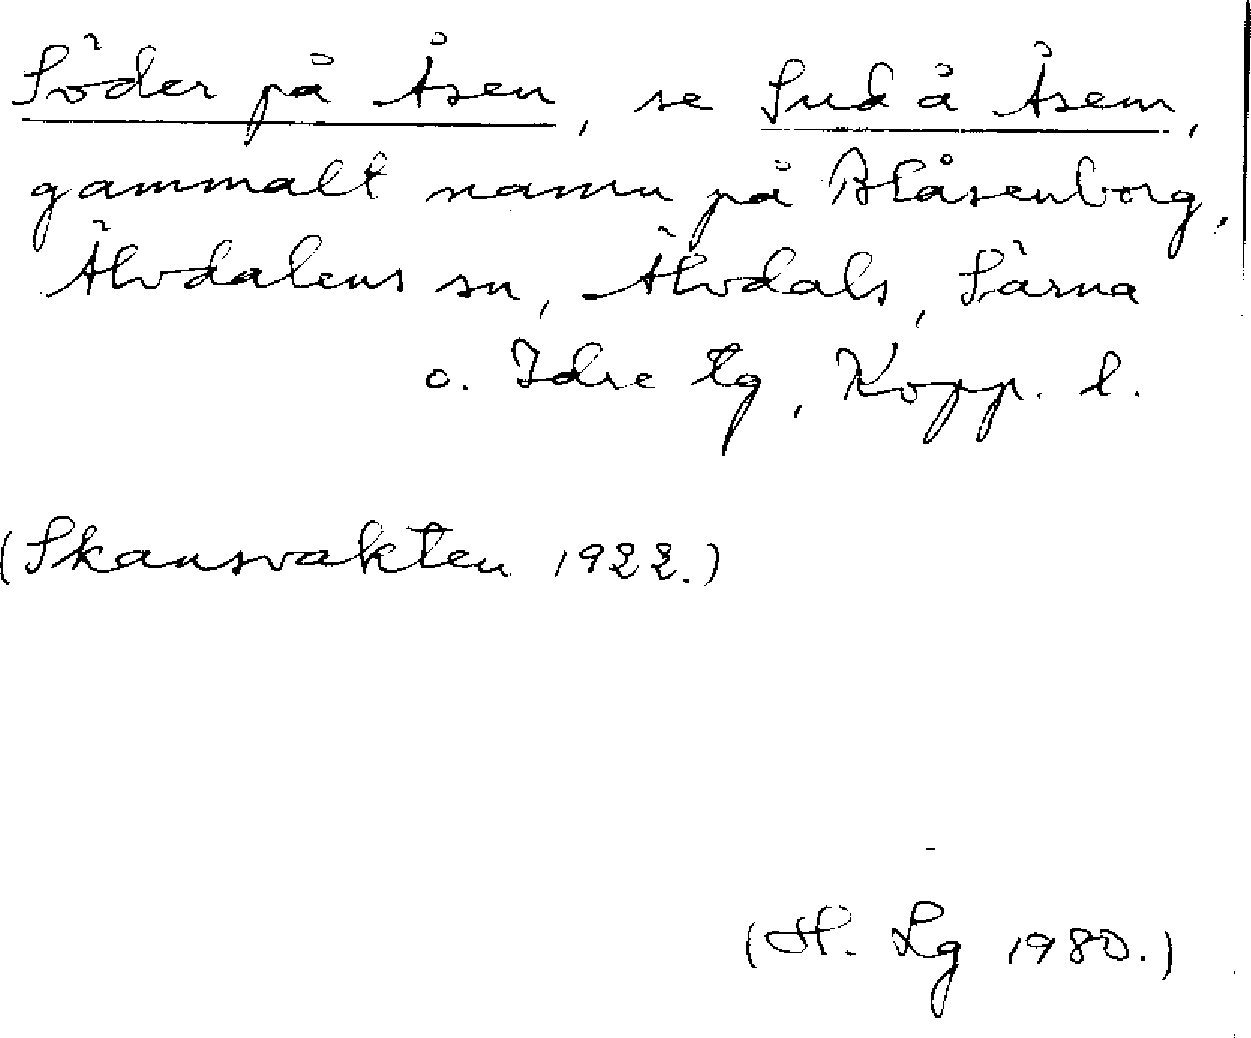 Söder på Åsen, se Sud å Åsem,
gammalt namn på Blåsenborg,
Älvdalens sn, Älvdals, Särna
o. Idre tg, Kopp. l.
(Skansvakten 1922.)
(H. Lg 1980.)